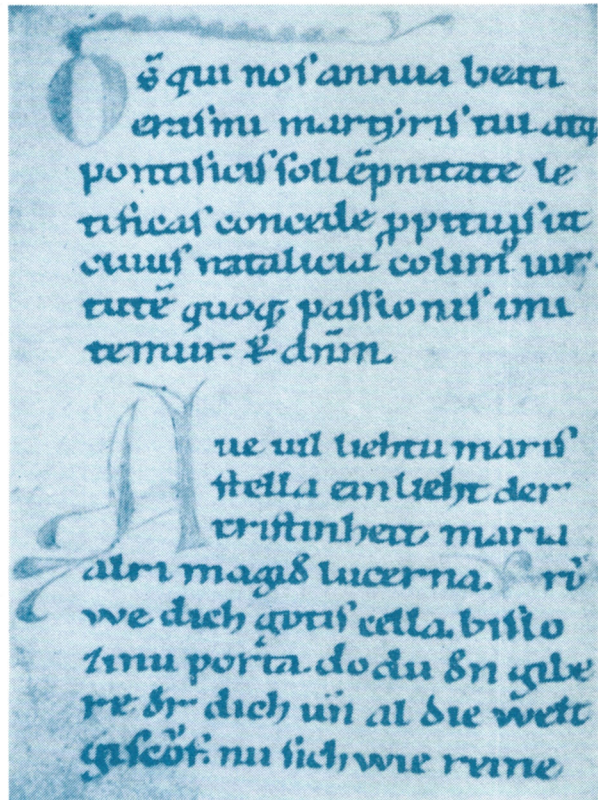 Ds̄ qui nos annua beati
erasmi martyris tui atq
pontificis sollēpnitate le
tificas concede ppitius ut
cuius natalicia colim uir
tutē quoq passionis imi
temur. P dn̄m.
Aue uil liehtu maris
stella ein lieht der
cristinheit maria
alri magid lucerna. frȯ
we dich gotis cella. bislo
zinu porta. do du dn gibe
re dr dich un̄ al die welt
giscof. nu sich wie reine